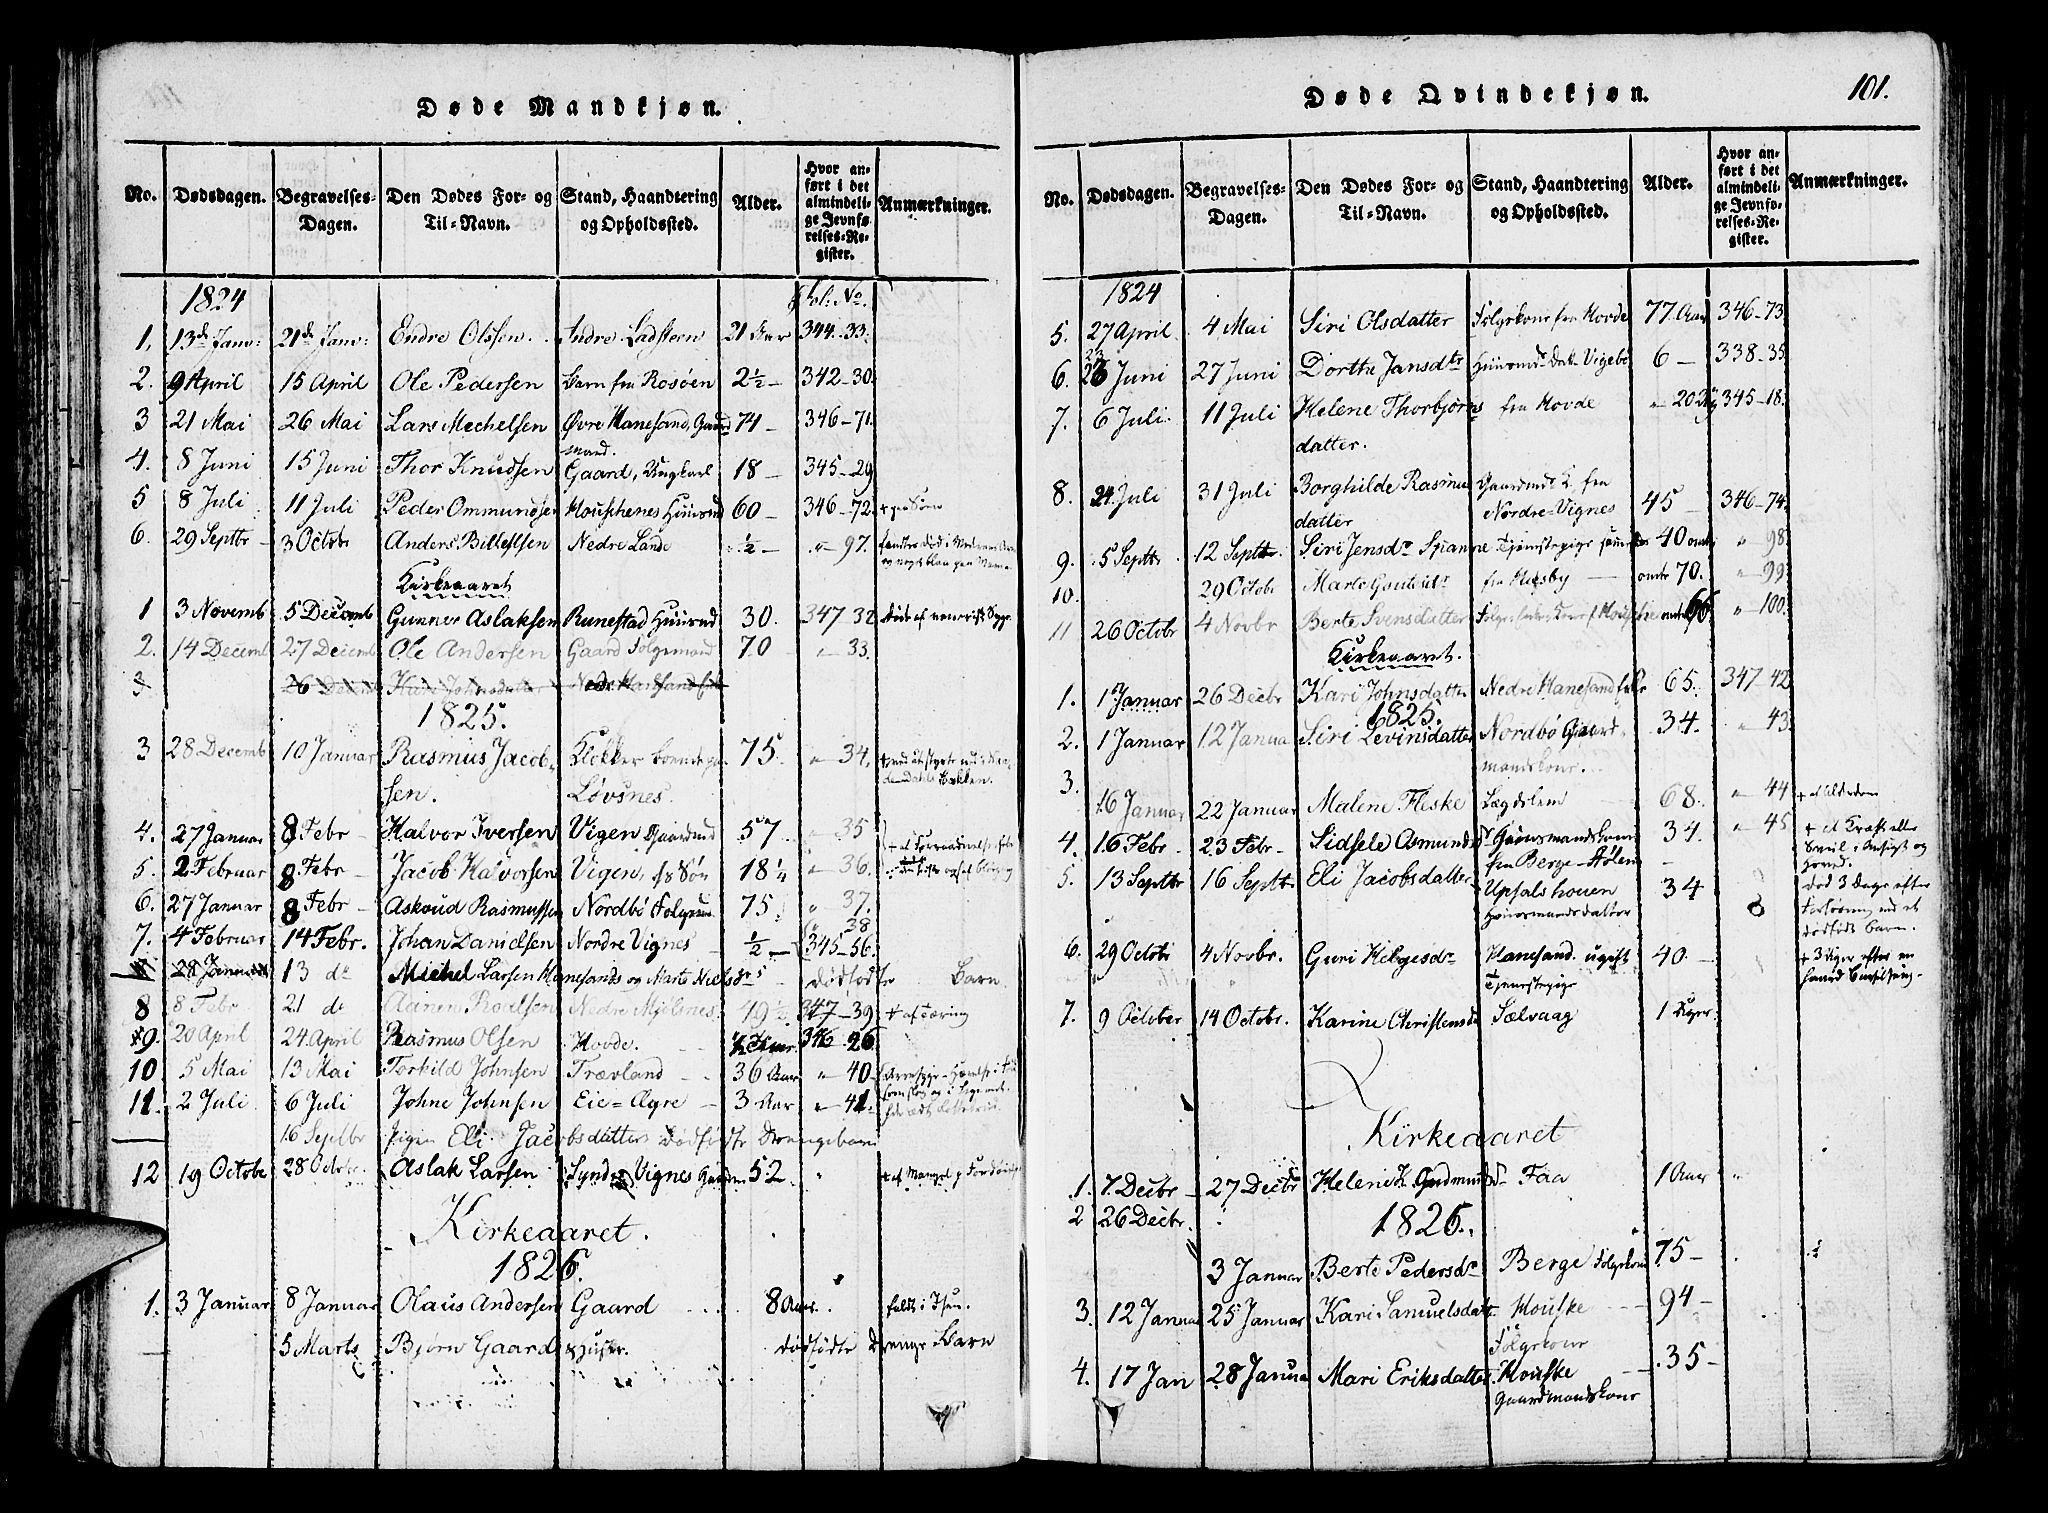 Døde Mandkjøn.
No. Dødsdagen. Begravelses-Dagen. Den Dødes For- og Til-Navn. Stand, Haandtering og Opholdssted. Alder. Hvor anført i det almindelige Jevnførelses-Register. Anmærkninger.
1824 Fol: No.
1. 13de Janv: 21de Janv: Endre Olssen. Indre Ladsteen 21 Aar 344-33.
2. 9 April 15 April Ole Pedersen Barn fra Rosøen 2½ - 342-30.
3 21 Mai 26 Mai Lars Mechelsen Øvre Hanesand, Gaard 74 - 346-71.
mand.
4. 8 Juni 15 Juni Thor Knudsen Gaard, Ungkarl 18 - 345-29
5 8 Juli 11 Juli Peder Ommundsen Houschenes Huusmd 60 - 346-72.
6. 29 Septbr - 3 Octobr Anders Nedre Lande ½ - " - 97.
Kirkeaaret
1 3 Novemb 5 Decemb Gunner Aslaksen Runestad Huusmd 30. 347 32
2. 14 Decemb 27 Decemb Ole Andersen Gaard Folgemand 70 " - 33.
3 26 Decemb Kari Johnsdatter Nedre Hanesand
1825.
3 28 Decemb 10 Januar Rasmus Jacob- Klokker boende paa 75. " - 34.
sen. Løvsnes.
4. 27 Januar 8 Febr - Halvor Iversen Vigen Gaardmd 57 " 35
5. 2 Februar 8 Febr - Jacob Halvorsen Vigen, Søn 18¼ " - 36.
6. 27 Januar 8 Febr Askoud Rasmussen Nordbø Folgemd 75. " 37.
" 28
7. 4 Februar 14 Febr. Johan Danielsen Nordre Vignes - ½ - 345-56.
28 Januar 13 do Michel Larsen Hanesands og Marte Nielsdr dødfødte Barn.
8 8 Febr 21 do Aanen Roalsen Nedre Mjølsnes. 49½ 347-39 + af tæring
9. 20 April 24 April Rasmus Olsen Hovde. 346 26
10 5 Mai 13 Mai Torkild Johnsen Trævland - 36 Aar " 40.
11. 2 Juli 6 Juli Johne Johnsen Eie-Ægre - 3 Aar " - 41.
16 Septbr Pigen Eli Jacobsdatters dødfødte Drengebarn
12 19 Octobr 28 Octobr. Aslak Larsen Syndre Vignes 52. " + af Mangel p
Kirkeaaret.
1826.
1. 3 Januar 8 Januar Olaus Andersen Gaard 8 Aar. faldt i
5 Marts Bjørn Gaard dødfødte Drenge Barn
Døde Qvindekjøn. 101.
No. Dødsdagen. Begravelses-Dagen. Den Dødes For- og Til-Navn. Stand, Haandtering og Opholdssted. Alder. Hvor anført i det almindelige Jevnførelses-Register. Anmærkninger.
1824
5. 27 April 4 Mai Siri Olsdatter Folgekone fra Hovde 77 Aar 346-73.
6. 23 Juni 27 Juni Dorthe Jansdtr Vigebø 6 - 338-35.
7. 6 Juli. 11 Juli Helene Thorbjørns fra Hovde " 20 345-18.
datter.
8. 24 Juli 31 Juli Borghilde Rasmus Gaardmds K. fra 45 - 346-74.
datter Nordre-Vignes
9. 5 Septbr 12 Septbr. Siri Jensdr Spanne Tjenstepige 40 omtr " 98.
10. 29 Octobr Marte fra omtr 70. " - 99.
11 26 Octobr 4 Novbr Berte Svensdatter omtr 66. " 100.
Kirkeaaret.
1. 1 Januar 26 Decbr Kari Johnsdatter Nedre Hanesand 65. 347-42
1825.
2. 1 Januar 12 Januar Siri Levinsdatter Nordbø Gaard- 34. " 43.
mandskone.
3. 16 Januar 22 Januar Malene Fleske Lægdslem 68. " 44 + af Alderdom
4. 16 Febr. 23 Febr - Sidsele Osmundsdr Huusmandskone 34. " - 45 + af Kræft eller
fra Berge - i Ansigt og
hoved.
5. 13 Septbr 16 Septbr Eli Jacobsdatter Upsals houen 34 død 3 Dage efter
Huusmandsdatter Forløsning med et
dødfødt Barn.
6. 29 Octobr 4 Novbr. Guri Helgesdr Hanesand ugift 40. - + 3 Uger efter en
Tjenestepige
7. 9 October 14 Octobr. Karine Christensdr Sælvaag 1 Uger.
Kirkeaaret
1. 7 Decbr - 27 Decbr Helene K. Gudmundsdr Faa 1 Aar "
2 26 Decbr. 1826.
3 Januar Berte Pedersdr Berge Folgekone 75 -
3. 12 Januar 25 Januar Kari Samuelsdatr Houske 94 -
Folgekone
4. 17 Jan 28 Januar Mari Eriksdatter Houske 35 -
Gaardmandskone